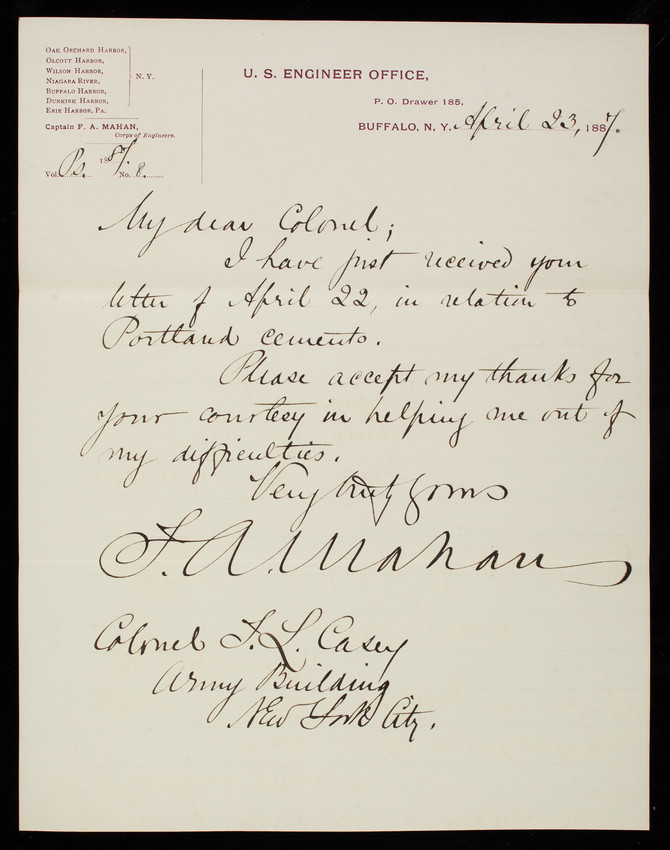 Oak Orchard Harbor,
Olcott Harbor,
Wilson Harbor,
Niagara River,
Buffalo Harbor,
Dunkirk Harbor,
N. Y.
Erie Harbor, Pa.
Captain F. A. MAHAN,
Corps of Engineers.
1887.
Vol. Ps. No. 8.
U. S. ENGINEER OFFICE,
P. O. Drawer 185,
BUFFALO, N. Y. April 23, 1887.
My dear Colonel;
I have just received your
letter of April 22, in relation to
Portland cements.
Please accept my thanks for
your courtesy in helping me out of
my difficulties.
Very truly yours
F. A. Mahan
Colonel T. L. Casey
Army Building
New York City.